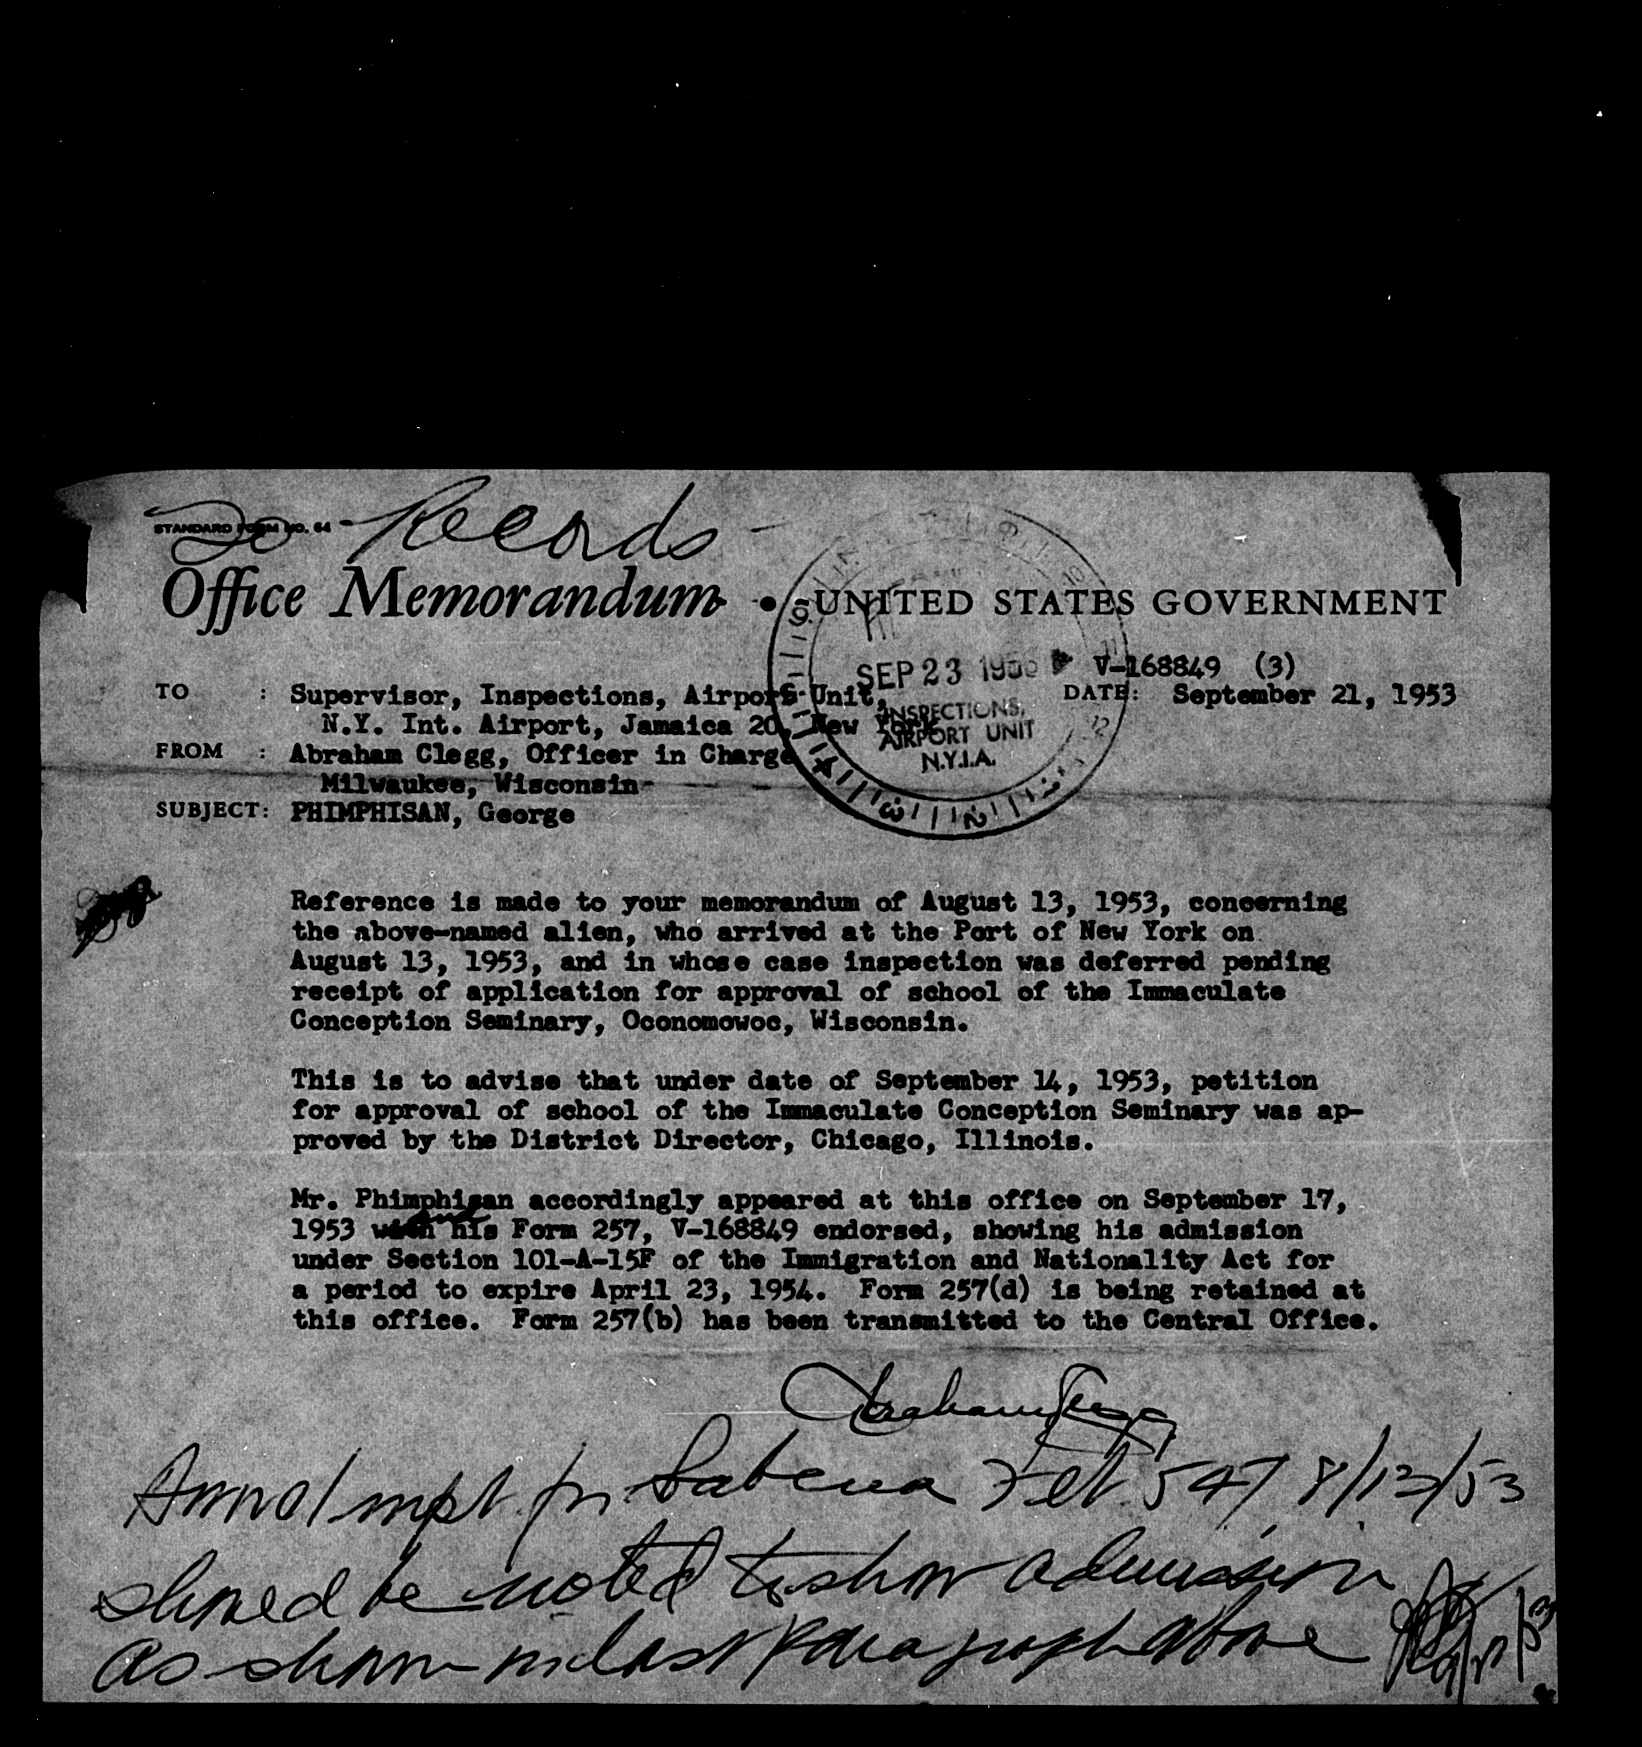 To Records -
STANDARD FORM NO. 64
Office Memorandum • UNITED STATES GOVERNMENT
V-168849 (3)
TO : Supervisor, Inspections, Airport Unit, DATE: September 21, 1953
N.Y. Int. Airport, Jamaica 20, New York
FROM : Abraham Clegg, Officer in Charge
Milwaukee, Wisconsin
SUBJECT: PHIMPHISAN, George
SEP 23 1953
INSPECTIONS,
AIRPORT UNIT
N.Y.I.A.
Reference is made to your memorandum of August 13, 1953, concerning
the above-named alien, who arrived at the Port of New York on
August 13, 1953, and in whose case inspection was deferred pending
receipt of application for approval of school of the Immaculate
Conception Seminary, Oconomowoc, Wisconsin.
This is to advise that under date of September 14, 1953, petition
for approval of school of the Immaculate Conception Seminary was ap-
proved by the District Director, Chicago, Illinois.
Mr. Phimphisan accordingly appeared at this office on September 17,
1953 his Form 257, V-168849 endorsed, showing his admission
under Section 101-A-15F of the Immigration and Nationality Act for
a period to expire April 23, 1954. Form 257(d) is being retained at
this office. Form 257(b) has been transmitted to the Central Office.
Abraham Clegg
Sabena Flt 547 8/13/53
should be noted to show admission
as shown in last paragraph above